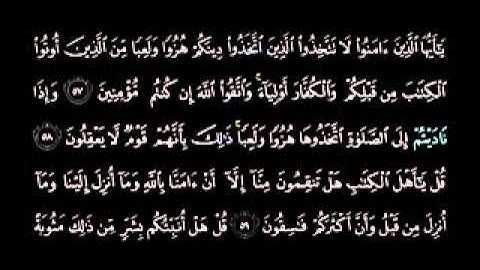 يَـٰٓأَيُّهَا ٱلَّذِينَ ءَامَنُوا۟ لَا تَتَّخِذُوا۟ ٱلَّذِينَ ٱتَّخَذُوا۟ دِينَكُمْ هُزُوًا وَلَعِبًا مِّنَ ٱلَّذِينَ أُوتُوا۟
ٱلْكِتَـٰبَ مِن قَبْلِكُمْ وَٱلْكُفَّارَ أَوْلِيَآءَ ۚ وَٱتَّقُوا۟ ٱللَّهَ إِن كُنتُم مُّؤْمِنِينَ ٥٧ وَإِذَا
نَادَيْتُمْ إِلَى ٱلصَّلَوٰةِ ٱتَّخَذُوهَا هُزُوًا وَلَعِبًا ۚ ذَٰلِكَ بِأَنَّهُمْ قَوْمٌ لَّا يَعْقِلُونَ ٥٨
قُلْ يَـٰٓأَهْلَ ٱلْكِتَـٰبِ هَلْ تَنقِمُونَ مِنَّآ إِلَّآ أَنْ ءَامَنَّا بِٱللَّهِ وَمَآ أُنزِلَ إِلَيْنَا وَمَآ
أُنزِلَ مِن قَبْلُ وَأَنَّ أَكْثَرَكُمْ فَـٰسِقُونَ ٥٩ قُلْ هَلْ أُنَبِّئُكُم بِشَرٍّ مِّن ذَٰلِكَ مَثُوبَةً